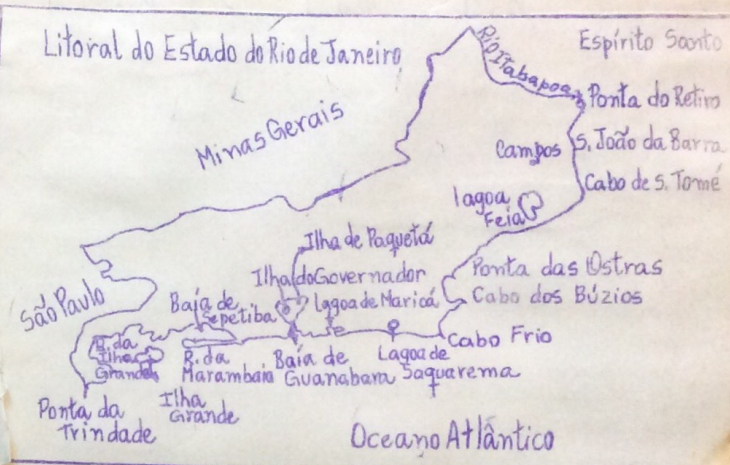 Litoral do Estado do Rio de Janeiro
Espírito Santo
Rio Itabapoana
Ponta do Retiro
Minas Gerais
Campos
S. João da Barra
Cabo de S. Tomé
Lagoa
Feia
Ilha de Paquetá
Ponta das Ostras
Ilha do Governador
Cabo dos Búzios
São Paulo
Baía de
Sepetiba
Lagoa de Maricá
Cabo Frio
B. da
Ilha
Grande
R. da
Marambaia
Baía de
Guanabara
Lagoa de
Saquarema
Ilha
Grande
Ponta da
Trindade
Oceano Atlântico